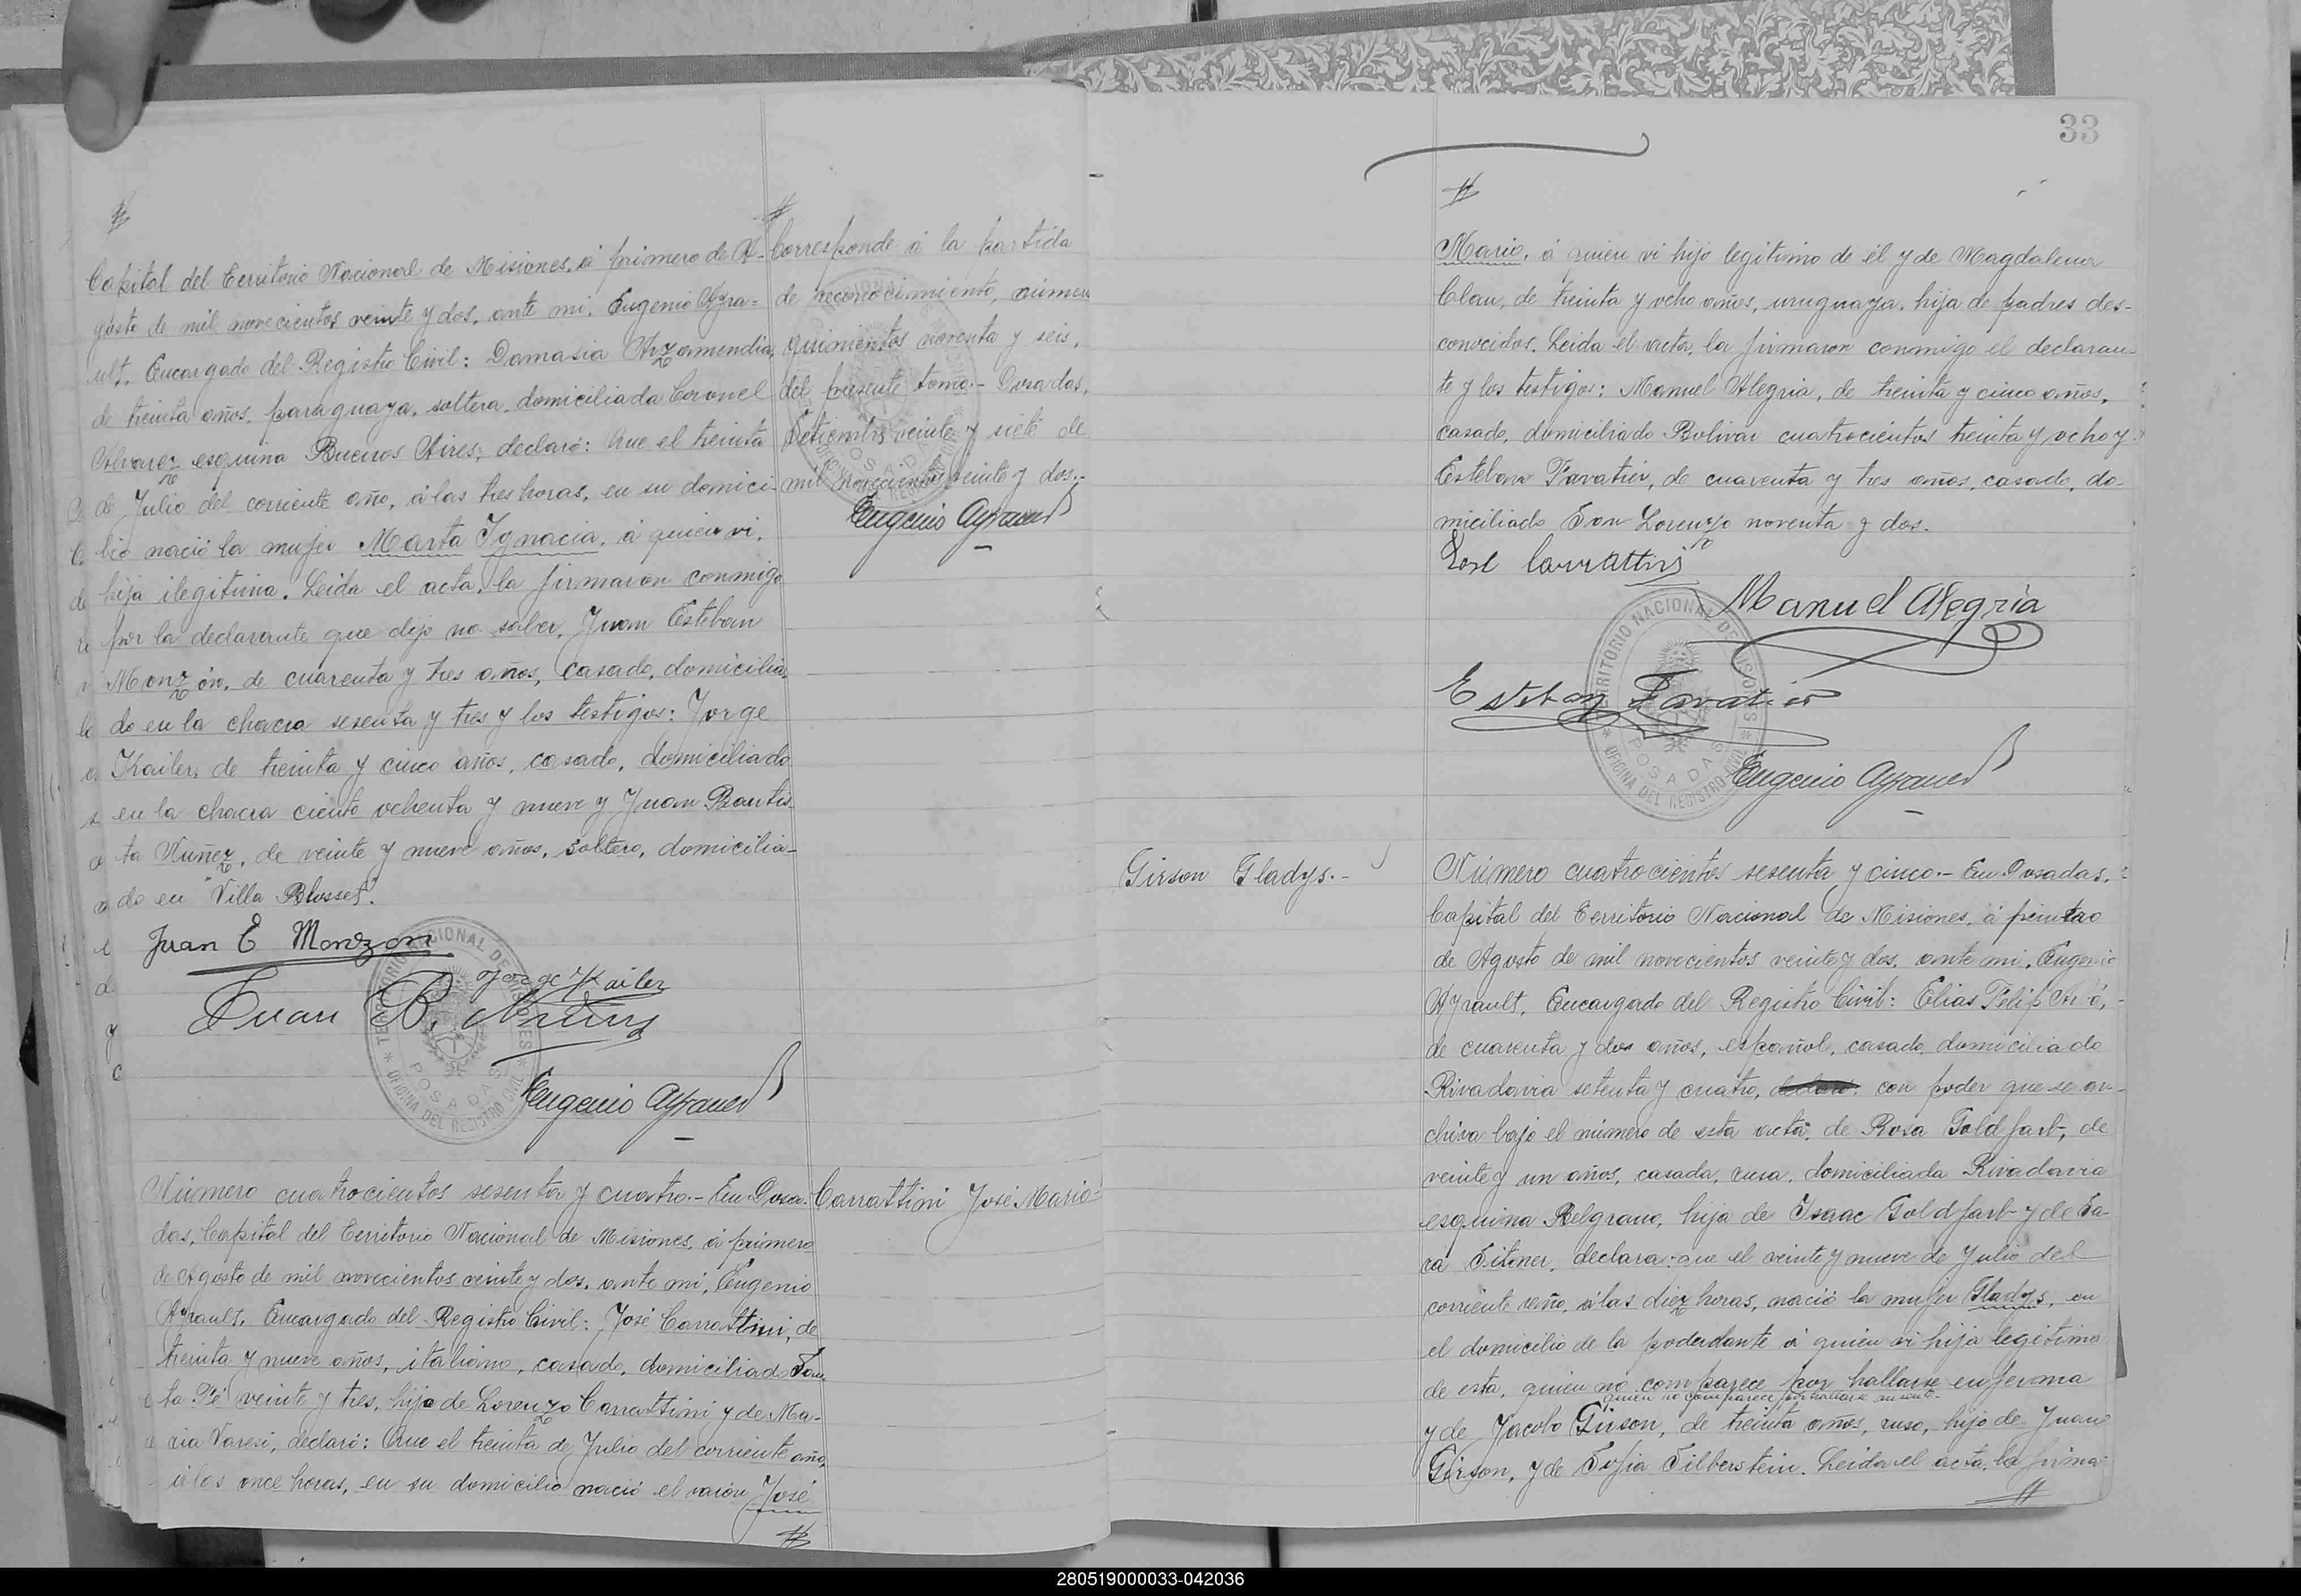 Capital del Territorio Nacional de Misiones, á primero de A-
gosto de mil novecientos veinte y dos, ante mi, Eugenio Ayra=
ult, Encargado del Registro Civil: Damasia Arzamendia,
de treinta años, paraguaya, soltera, domiciliada Coronel
Alvarez esquina Buenos Aires, declaró: Que el treinta
de Julio del corriente año, á las tres horas, en su domici-
lio nació la mujer Marta Ygnacia, á quien vi,
hija ilegitima. Leida el acta, la firmaron conmigo
por la declarante que dijo no saber, Juan Esteban
Monzón, de cuarenta y tres años, casado, domicilia-
do en la chacra sesenta y tres y los testigos: Jorge
Kailer, de treinta y cinco años, casado, domiciliado
en la chacra ciento ochenta y nueve y Juan Bautis-
ta Nuñez, de veinte y nueve años, soltero, domicilia-
do en "Villa Blosset".
Juan E Monzon
Jorge Kailer
Juan B. Nuñez
Eugenio Ayrault
TERRITORIO NACIONAL DE MISIONES
POSADAS
OFICINA DEL REGISTRO CIVIL
Corresponde á la partida
de reconocimiento, número
quinientos noventa y seis,
del presente tomo.- Posadas,
Setiembre veinte y siete de
mil novecientos veinte y dos.-
Eugenio Ayrault
Número cuatrocientos sesenta y cuatro.- En Posa-
das, Capital del Territorio Nacional de Misiones, á primero
de Agosto de mil novecientos veinte y dos, ante mi, Eugenio
Ayrault, Encargado del Registro Civil: José Carrattini, de
treinta y nueve años, italiano, casado, domiciliado San-
ta Fé veinte y tres, hijo de Lorenzo Carrattini y de Ma-
ria Varesi, declaró: Que el treinta de Julio del corriente año,
á las once horas, en su domicilio nació el varón José
Carrattini José Mario-
33
Mario, á quien vi hijo legitimo de él y de Magdalena
Clau, de treinta y ocho años, uruguaya, hija de padres des-
conocidos. Leida el acta, la firmaron conmigo el declaran-
te y los testigos: Manuel Alegria, de treinta y cinco años,
casado, domiciliado Bolivar cuatrocientos treinta y ocho y
Esteban Favatier, de cuarenta y tres años, casado, do-
miciliado San Lorenzo noventa y dos.
José Carrattini
Manuel Alegria
Esteban Favatier
Eugenio Ayrault
TERRITORIO NACIONAL DE MISIONES
POSADAS
OFICINA DEL REGISTRO CIVIL
Girson Gladys.-
Número cuatrocientos sesenta y cinco.- En Posadas,
Capital del Territorio Nacional de Misiones, á primero
de Agosto de mil novecientos veinte y dos, ante mi, Eugenio
Ayrault, Encargado del Registro Civil: Elias Felip
de cuarenta y dos años, español, casado, domiciliado
Rivadavia setenta y cuatro, con poder que se ar-
chiva bajo el número de esta acta, de Rosa Goldfarb, de
veinte y un años, casada, rusa, domiciliada Rivadavia
esquina Belgrano, hija de Isaac Goldfarb y de Sa-
ra Sitner, declara: que el veinte y nueve de Julio del
corriente año, á las diez horas, nació la mujer Gladys, en
el domicilio de la poderdante á quien vi hija legitima
de esta, quien no comparece por hallarse enferma
quien no comparece por hallarse ausente.
y de Jacobo Girson, de treinta años, ruso, hijo de Juan
Girson, y de Sofia Silberstein. Leida el acta, la firma-
280519000033-042036